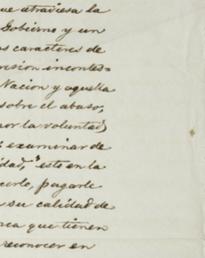 ue atraviesa la
Gobierno y un
os caracteres de
resion incontes-
Nacion y aquella
sobre el abuso,
por la voluntad
examinar de
idad, "este en la
pagarle
su calidad de
que tienen
reconocer en